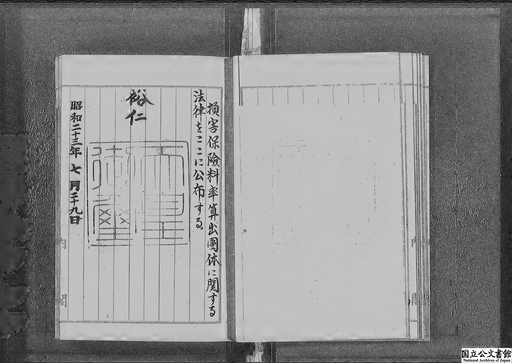 損害保険料率算出團体に関する
法律をここに公布する
裕仁
天皇御璽
昭和二十三年七月二十九日
内閣
国立公文書館
National Archives of Japan